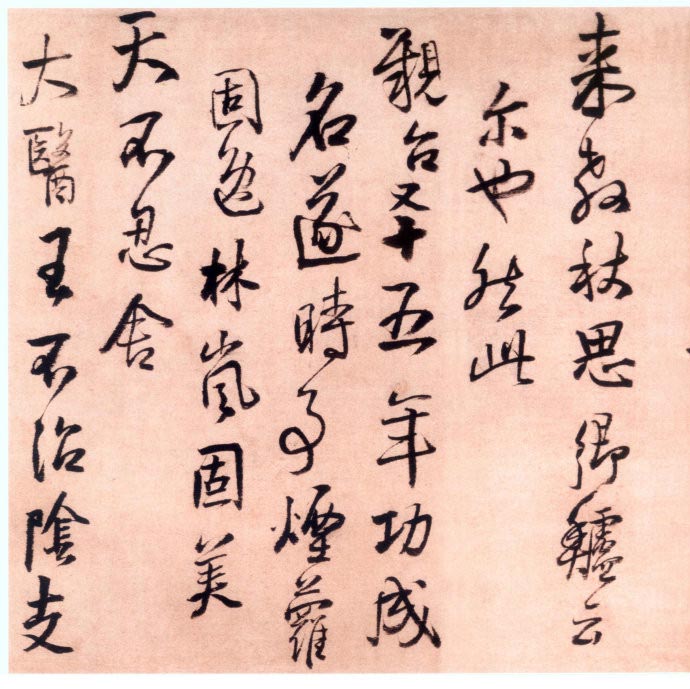 来教秋思鄉鱸云
尔也然此
親台又十五年功成
名遂時事煙蘿
固逸林嵐固美
天不忍舍
大醫王不治陰支